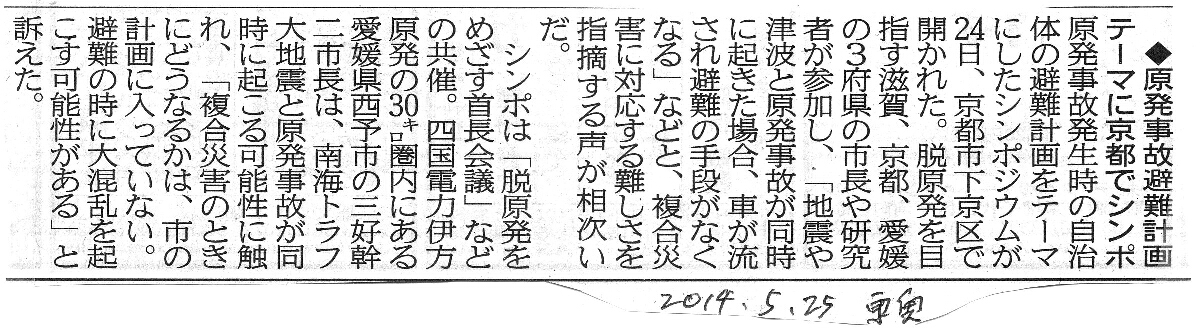 ◆原発事故避難計画
テーマに京都でシンポ
原発事故発生時の自治
体の避難計画をテーマ
にしたシンポジウムが
24日、京都市下京区で
開かれた。脱原発を目
指す滋賀、京都、愛媛
の3府県の市長や研究
者が参加し、「地震や
津波と原発事故が同時
に起きた場合、車が流
され避難の手段がなく
なる」などと、複合災
害に対応する難しさを
指摘する声が相次い
だ。
シンポは「脱原発を
めざす首長会議」など
の共催。四国電力伊方
原発の30㌔圏内にある
愛媛県西予市の三好幹
二市長は、南海トラフ
大地震と原発事故が同
時に起こる可能性に触
れ、「複合災害のとき
にどうなるかは、市の
計画に入っていない。
避難の時に大混乱を起
こす可能性がある」と
訴えた。
2014.5.25